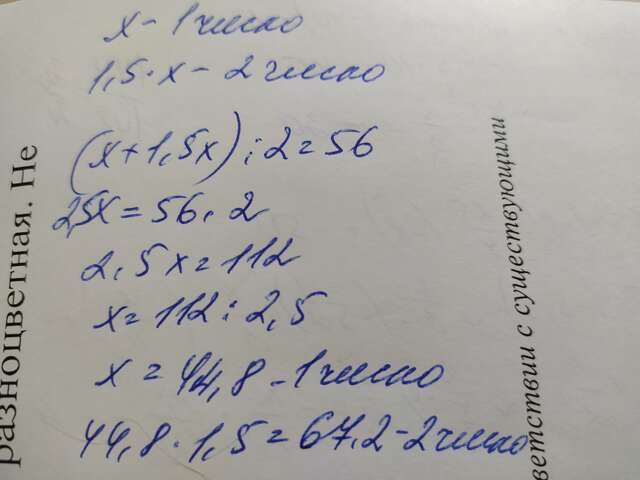 x - 1 число
1,5 · x - 2 число
(x + 1,5x) : 2 = 56
2,5x = 56 · 2
2,5x = 112
x = 112 : 2,5
x = 44,8 - 1 число
44,8 · 1,5 = 67,2 - 2 число
разноцветная. Не
ветствии с существующими